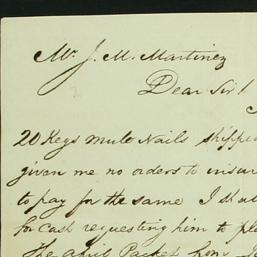 Mr. J. M. Martinez
Dear Sir!
20 Kegs Mule Nails shippe
given me no orders to insur
to pay for the same I sh
for cash requesting him to pl
The april Packet from